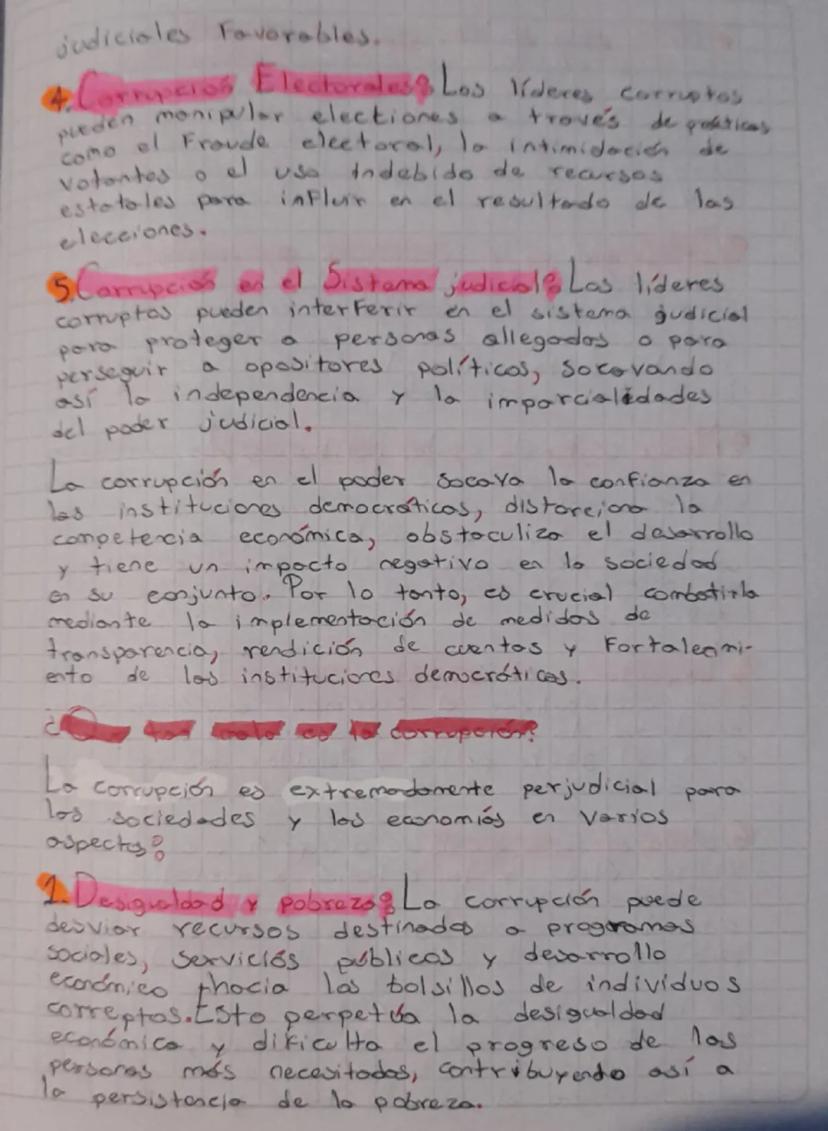 judiciales Favorables.
4. Corrupción Electorales: Los líderes corruptos
pueden manipular elections a través de prácticas
como el Fraude electoral, la intimidación de
votantes o el uso indebido de recursos
estatales para influir en el resultado de las
elecciones.
5. Corrupción en el Sistema judicial: Los líderes
corruptos pueden interferir en el sistema judicial
para proteger a personas allegados o para
perseguir a opositores políticos, socavando
así la independencia y la imparcialidades
del poder judicial.
La corrupción en el poder socava la confianza en
las instituciones democráticas, distorciona la
competencia económica, obstaculiza el desarrollo
y tiene un impacto negativo en la sociedad
en su conjunto. Por lo tanto, es crucial combatirla
mediante la implementación de medidas de
transparencia, rendición de cuentas y Fortalecimi-
ento de las instituciones democráticas.
¿Que tan mala es la corrupción?
La corrupción es extremadamente perjudicial para
las sociedades y las economías en varios
aspectos:
1. Desigualdad y pobreza: La corrupción puede
desviar recursos destinados a programas
sociales, servicios públicos y desarrollo
económico hacia los bolsillos de individuos
correptos. Esto perpetúa la desigualdad
económica y dificulta el progreso de las
personas más necesitadas, contribuyendo así a
la persistencia de la pobreza.